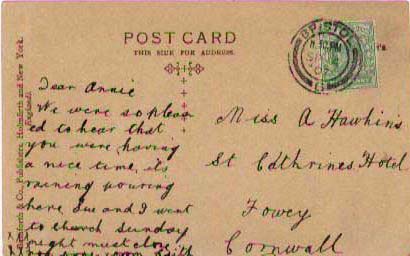 POST CARD
THIS SIDE FOR ADDRESS.
BRISTOL
Bamforth & Co., Publishers, Holmfirth and New York.
(England).
Dear Annie
We were so pleas
ed to hear that
you were having
a nice time, its
raining pouring
here Sue and I went
to church Sunday
night must close
Miss A Hawkins
St Cathrines Hotel
Fowey
Cornwall